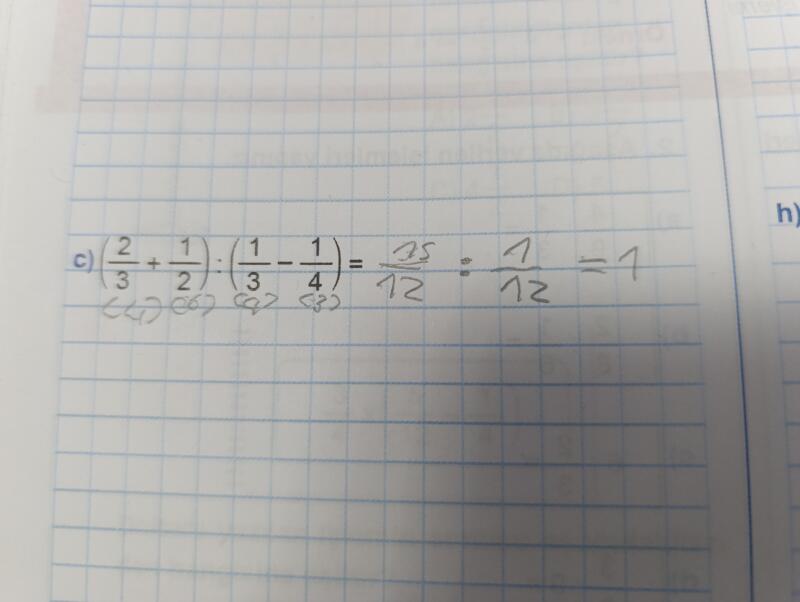 c) (2/3 + 1/2) : (1/3 − 1/4) = 15/12 : 1/12 = 1
(4) (6) (4) (3)
h)